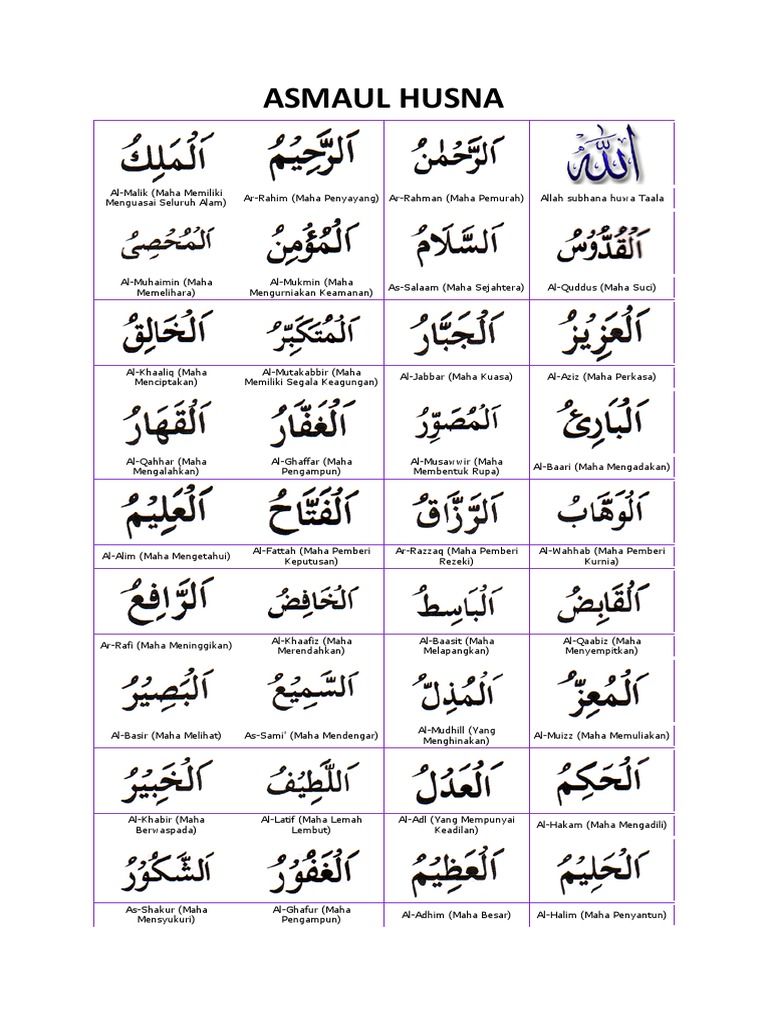 ASMAUL HUSNA
الله
Allah subhana huwa Taala
اَلرَّحْمٰنُ
Ar-Rahman (Maha Pemurah)
اَلرَّحِيْمُ
Ar-Rahim (Maha Penyayang)
اَلْمَلِكُ
Al-Malik (Maha Memiliki
Menguasai Seluruh Alam)
اَلْقُدُّوْسُ
Al-Quddus (Maha Suci)
اَلسَّلَامُ
As-Salaam (Maha Sejahtera)
اَلْمُؤْمِنُ
Al-Mukmin (Maha
Mengurniakan Keamanan)
اَلْمُحْصِىُ
Al-Muhaimin (Maha
Memelihara)
اَلْعَزِيْزُ
Al-Aziz (Maha Perkasa)
اَلْجَبَّارُ
Al-Jabbar (Maha Kuasa)
اَلْمُتَكَبِّرُ
Al-Mutakabbir (Maha
Memiliki Segala Keagungan)
اَلْخَالِقُ
Al-Khaaliq (Maha
Menciptakan)
اَلْبَارِئُ
Al-Baari (Maha Mengadakan)
اَلْمُصَوِّرُ
Al-Musawwir (Maha
Membentuk Rupa)
اَلْغَفَّارُ
Al-Ghaffar (Maha
Pengampun)
اَلْقَهَارُ
Al-Qahhar (Maha
Mengalahkan)
اَلْوَهَّابُ
Al-Wahhab (Maha Pemberi
Kurnia)
اَلرَّزَّاقُ
Ar-Razzaq (Maha Pemberi
Rezeki)
اَلْفَتَّاحُ
Al-Fattah (Maha Pemberi
Keputusan)
اَلْعَلِيْمُ
Al-Alim (Maha Mengetahui)
اَلْقَابِضُ
Al-Qaabiz (Maha
Menyempitkan)
اَلْبَاسِطُ
Al-Baasit (Maha
Melapangkan)
اَلْخَافِضُ
Al-Khaafiz (Maha
Merendahkan)
اَلرَّافِعُ
Ar-Rafi (Maha Meninggikan)
اَلْمُعِزُّ
Al-Muizz (Maha Memuliakan)
اَلْمُذِلُّ
Al-Mudhill (Yang
Menghinakan)
اَلسَّمِيْعُ
As-Sami' (Maha Mendengar)
اَلْبَصِيْرُ
Al-Basir (Maha Melihat)
اَلْحَكِمُ
Al-Hakam (Maha Mengadili)
اَلْعَدْلُ
Al-Adl (Yang Mempunyai
Keadilan)
اَللَّطِيْفُ
Al-Latif (Maha Lemah
Lembut)
اَلْخَبِيْرُ
Al-Khabir (Maha
Berwaspada)
اَلْحَلِيْمُ
Al-Halim (Maha Penyantun)
اَلْعَظِيْمُ
Al-Adhim (Maha Besar)
اَلْغَفُوْرُ
Al-Ghafur (Maha
Pengampun)
اَلشَّكُوْرُ
As-Shakur (Maha
Mensyukuri)